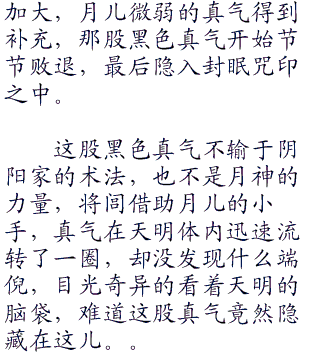 加大，月儿微弱的真气得到
补充，那股黑色真气开始节
节败退，最后隐入封眠咒印
之中。
这股黑色真气不输于阴
阳家的术法，也不是月神的
力量，将闾借助月儿的小
手，真气在天明体内迅速流
转了一圈，却没发现什么端
倪，目光奇异的看着天明的
脑袋，难道这股真气竟然隐
藏在这儿。。